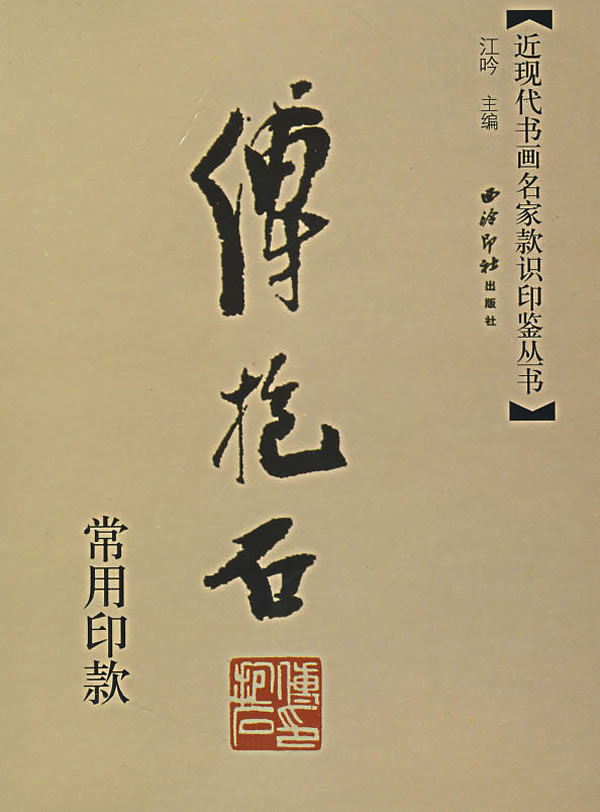 【近现代书画名家款识印鉴丛书】
江吟 主编
西泠印社出版社
傅抱石
傅印
抱石
常用印款